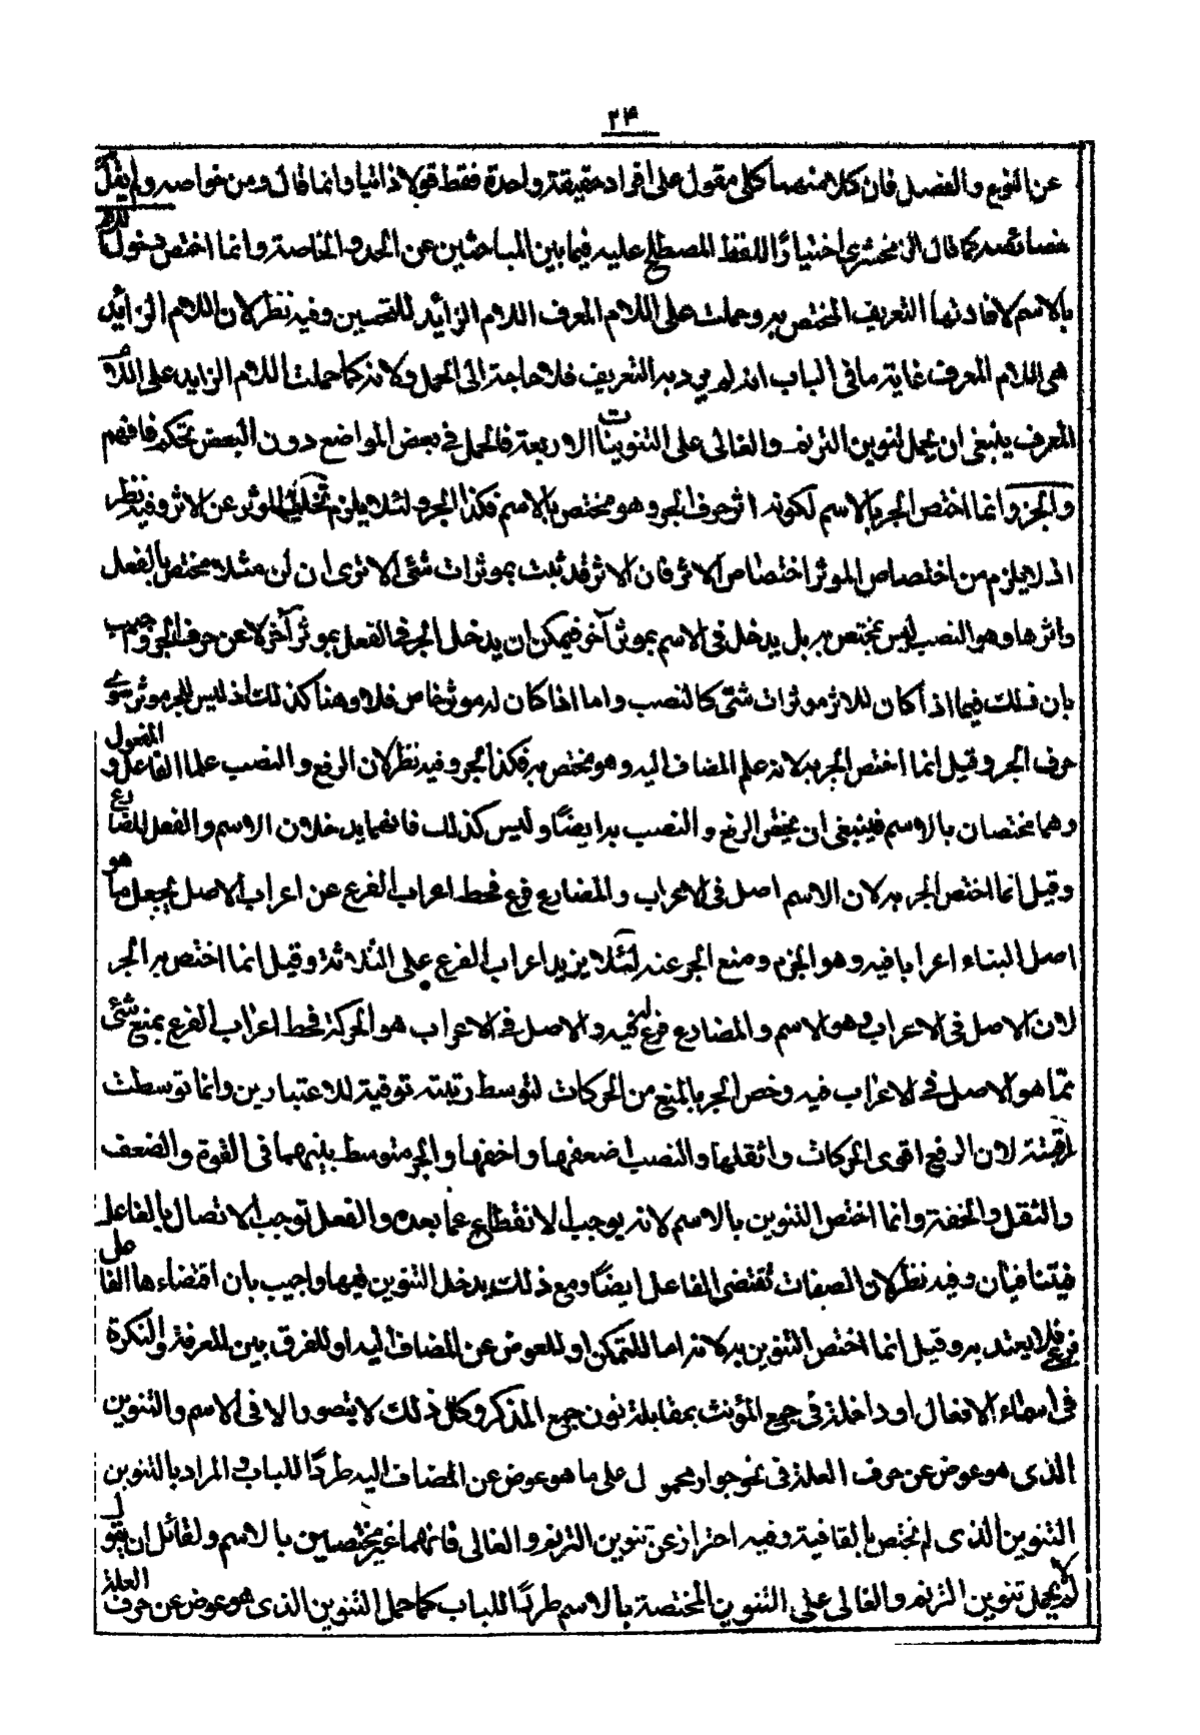 ۲۴
عن النوع والفصل فان كلا منهما كلى مقول على افراد حقيقة واحدة فقط قولا ذاتيا وانما قال ومن خواصه ولم يقل
خصائصه كما قال الزمخشرى اختيارا اللفظ المصطلح عليه فيما بين الباحثين عن الحد و الخاصة وانما اختص دخول اللام
بالاسم لافادتها التعريف المختص به وحملت على اللام المعرف اللام الزائد للتحسين وفيه نظر لان اللام الزائد
هى اللام المعرف غاية ما فى الباب انه لم يرد به التعريف فلا حاجة الى الحمل ولانه كما حملت اللام الزايد على اللام
المعرف ينبغى ان يحمل تنوين الترنم والغالى على التنوينات الاربعة فالحمل فى بعض المواضع دون البعض تحكم فافهم
والجر وانما اختص الجر بالاسم لكونه اثر حرف الجر وهو مختص بالاسم فكذا الجر لئلا يلزم تخلف الموثر عن الاثر وفيه نظر
اذ لا يلزم من اختصاص الموثر اختصاص الاثر فان الاثر قد ثبت بموثرات شتى الا ترى ان لن مثلا مختص بالفعل
واثرها وهو النصب ليس بمختص به بل يدخل فى الاسم بموثر آخر فيمكن ان يدخل الجر فى الفعل بموثر آخر لا عن حرف الجر واجيب
بان ذلك فيما اذا كان للاثر موثرات شتى كالنصب واما اذا كان له موثر خاص فلا وهنا كذلك اذ ليس للجر موثر سوى
حرف الجر وقيل انما اختص الجر به لانه علم المضاف اليه وهو مختص به فكذا الجر وفيه نظر لان الرفع والنصب علما الفاعل والمفعول
وهما مختصان بالاسم فينبغى ان يختص الرفع والنصب به ايضا وليس كذلك فانهما يدخلان الاسم والفعل المضارع
وقيل انما اختص الجر به لان الاسم اصل فى الاعراب والمضارع فرع فحط اعراب الفرع عن اعراب الاصل بجعل ما هو
اصل البناء اعرابا فيه وهو الجزم ومنع الجر عنه لئلا يزيد اعراب الفرع على الثلاثة وقيل انما اختص به الجر
لان الاصل فى الاعراب هو الاسم والمضارع فرع له فيه والاصل فى الاعراب هو الحركة فحط اعراب الفرع بمنع شئ
مما هو الاصل فى الاعراب فيه وخص الجر بالمنع من الحركات لتوسط رتبته توقية للاعتبارين وانما توسطت
رتبته لان الرفع اقوى الحركات واثقلها والنصب اضعفها واخفها والجر متوسط بينهما فى القوة والضعف
والثقل والخفة وانما اختص التنوين بالاسم لانه يوجب الانقطاع عما بعده والفعل توجب الاتصال بالفاعل
فيتنافيان وفيه نظر لان الصفات تقتضى الفاعل ايضا ومع ذلك يدخل التنوين فيها واجيب بان اقتضاءها الفاعل
فرع فلا يعتد به وقيل انما اختص التنوين به لانه اما للتمكن او للعوض عن المضاف اليه او للفرق بين المعرفة والنكرة
فى اسماء الافعال او داخلة فى جمع المؤنث بمقابلة نون جمع المذكر وكل ذلك لا يتصور الا فى الاسم والتنوين
الذى هو عوض عن حرف العلة فى نحو جوار محمول على ما هو عوض عن المضاف اليه طردا للباب والمراد بالتنوين
التنوين الذى لم يختص بالقافية وفيه احتراز عن تنوين الترنم والغالى فانهما غير مختصين بالاسم ولقائل ان يقول
لم لا يحمل تنوين الترنم والغالى على التنوين المختصة بالاسم طردا للباب كما حمل التنوين الذى هو عوض عن حرف العلة